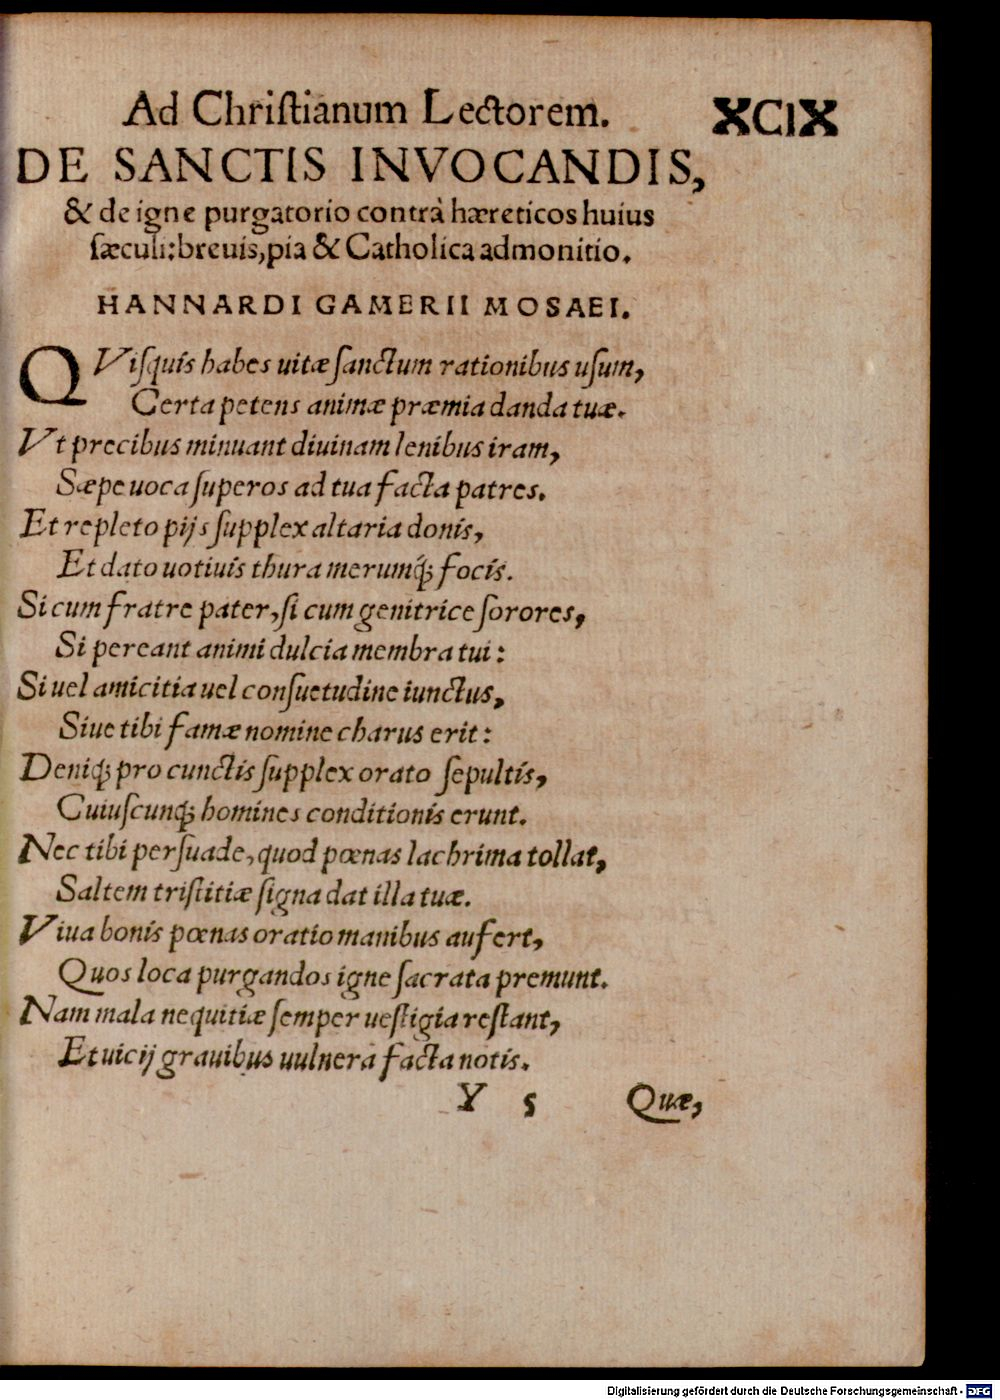 Ad Chriſtianum Lectorem. XCIX
DE SANCTIS INVOCANDIS,
& de igne purgatorio contrà hæreticos huius
ſæculi: breuis, pia & Catholica admonitio.
HANNARDI GAMERII MOSAEI.
QViſquis habes uitæ ſanctum rationibus uſum,
Certa petens animæ præmia danda tuæ.
Vt precibus minuant diuinam lenibus iram,
Sæpe uoca ſuperos ad tua facta patres.
Et repleto pijs ſupplex altaria donis,
Et dato uotiuis thura merumq́; focis.
Si cum fratre pater, ſi cum genitrice ſorores,
Si pereant animi dulcia membra tui:
Si uel amicitia uel conſuetudine iunctus,
Siue tibi famæ nomine charus erit:
Deniq; pro cunctis ſupplex orato ſepultis,
Cuiuſcunq; homines conditionis erunt.
Nec tibi perſuade, quod pœnas lachrima tollat,
Saltem triſtitiæ ſigna dat illa tuæ.
Viua bonis pœnas oratio manibus aufert,
Quos loca purgandos igne ſacrata premunt.
Nam mala nequitiæ ſemper ueſtigia reſtant,
Et uicij grauibus uulnera facta notis.
Y 5 Quæ,
Digitalisierung gefördert durch die Deutsche Forschungsgemeinschaft - DFG